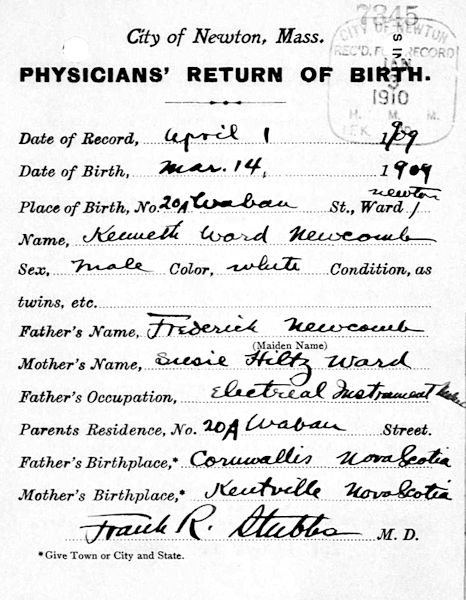 7845
City of Newton, Mass.
CITY OF NEWTON
REC'D. FOR RECORD
JAN
1910
PHYSICIANS' RETURN OF BIRTH.
Date of Record, April 1 1909
Date of Birth, Mar. 14, 1909
newton
Place of Birth, No. 20A Waban St., Ward 1
Name, Kenneth Ward Newcomb
Sex, male Color, white Condition, as
twins, etc.
Father's Name, Frederick Newcomb
(Maiden Name)
Mother's Name, Susie Hiltz Ward
Father's Occupation, Electrical Instrument Maker
Parents Residence, No. 20A Waban Street.
Father's Birthplace,* Cornwallis Nova Scotia
Mother's Birthplace,* Kentville Nova Scotia
Frank R. Stubbs M. D.
*Give Town or City and State.